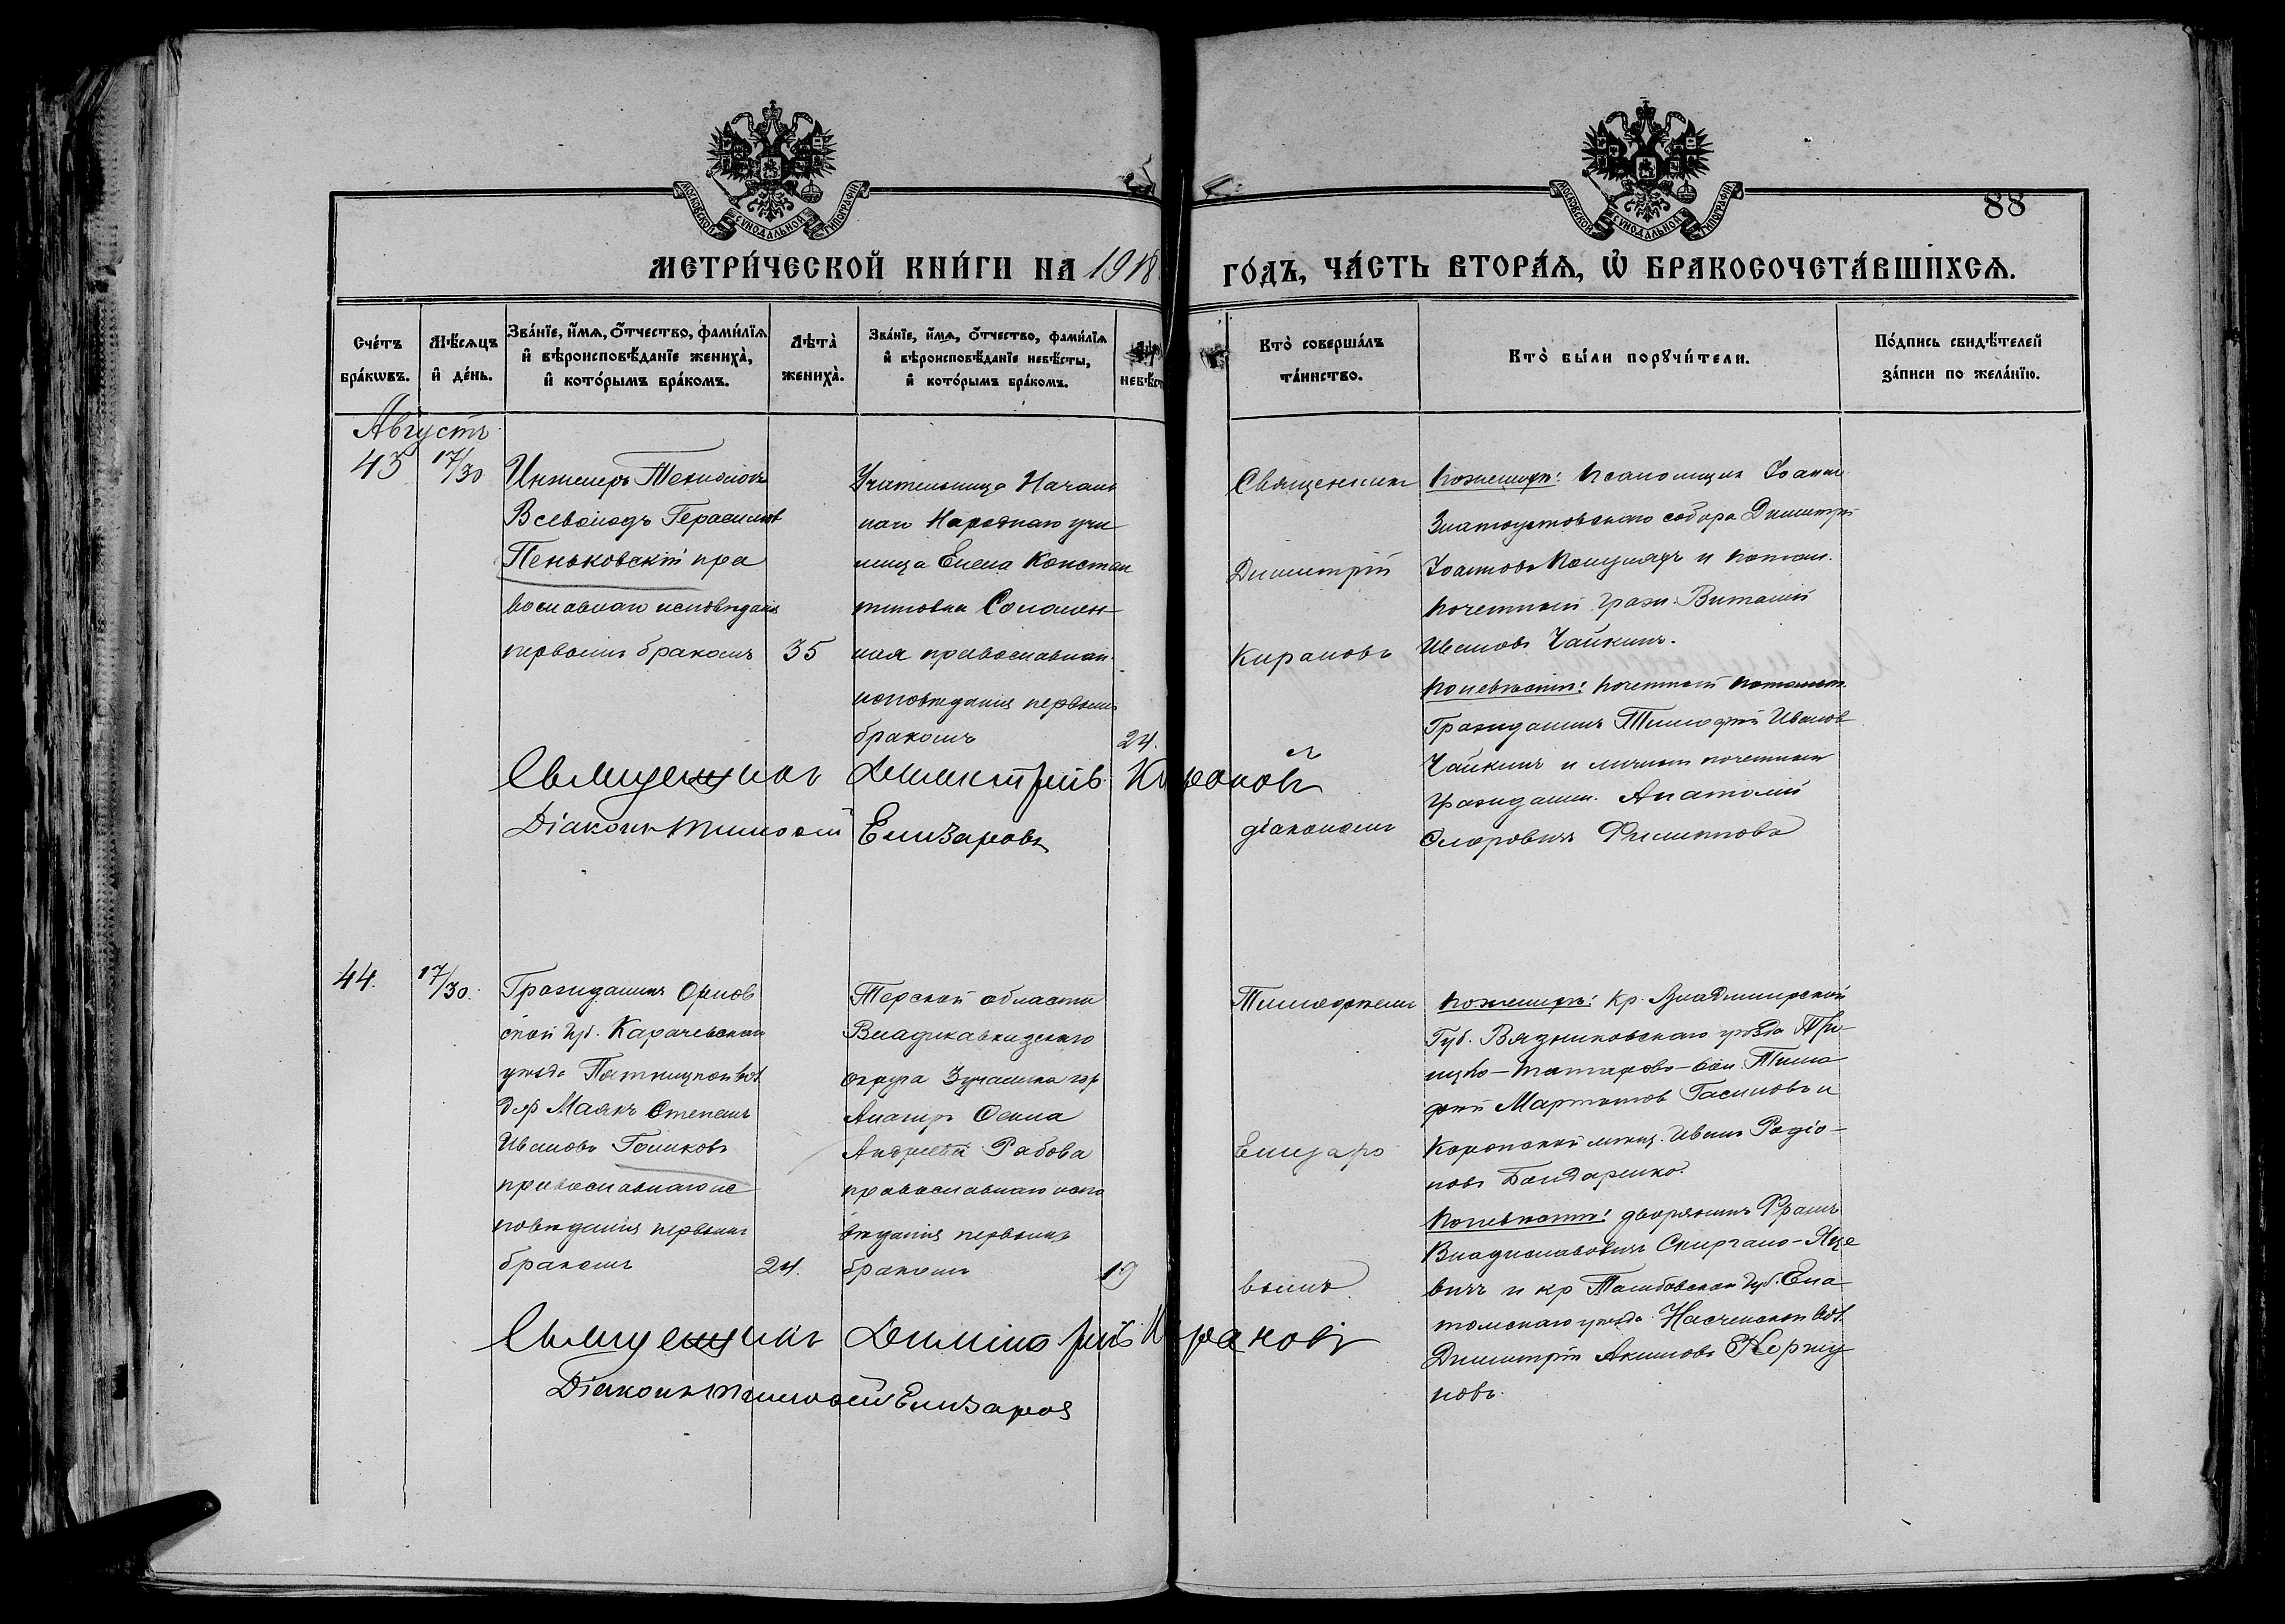 МОСКОВСКОЙ СУНОДАЛЬНОЙ ТИПОГРАФІИ
МОСКОВСКОЙ СУНОДАЛЬНОЙ ТИПОГРАФІИ
88
МЕТРИ́ЧЕСКОЙ КНИ́ГИ НА 1918
ГО́ДЪ, ЧА́СТЬ ВТОРА́Ѧ, Ѽ БРАКОСОЧЕТА́ВШИХСѦ.
Сче́тъ
бра́кѡвъ.
Мѣ́сѧцъ
и҆ де́нь.
Зва́нїе, и҆́мѧ, ѻ҆́тчество, фами́лїѧ
и҆ вѣроисповѣ́данїе жениха̀,
и҆ кото́рымъ бра́комъ.
Лѣта̀
жениха̀.
Зва́нїе, и҆́мѧ, ѻ҆́тчество, фами́лїѧ
и҆ вѣроисповѣ́данїе невѣ́сты,
и҆ кото́рымъ бра́комъ.
невѣ́ст
Кто̀ соверша́лъ
та́инство.
Кто̀ бы́ли порꙋчи́тели.
По́дпись свидѣ́телей
за́писи по жела́нїю.
Августъ
43
17/30
Инженеръ Технологъ
Всеволодъ Герасимов
Пеньковскій пра
вославнаго исповѣданія
первымъ бракомъ
35
Учительница Началь
наго Народнаго учи
лища Елена Констан
тиновна Соломен
ная православнаго
исповѣданія первымъ
бракомъ
24.
Священник
Димитрій
Кирановъ
съ
діакономъ
По женихѣ: Псаломщик Іоанно
Златоустовскаго собора Димитрій
Іоанновъ и потом.
почетный граж. Виталій
Ивановъ Чайкинъ.
По невѣстѣ: почетный потомст.
Гражданинъ Тимофей Иванов
Чайкинъ и личный почетный
граждан. Анатолій
Филиппова
Священникъ Димитрій Кирановъ
Діаконъ Тимофей Елизаровъ
44.
17/30.
Гражданинъ Орлов
ской губ. Карачевскаго
уѣзда Пятницкой вол.
дер Маякъ Степанъ
Ивановъ Голиковъ
православнаго ис
повѣданія первымъ
бракомъ
24.
Терской области
Владикавказскаго
округа гор
Алагиръ
Андреева Рябова
православнаго испо
вѣданія первымъ
бракомъ
19
Тимофеемъ
Елизаро
вымъ
По женихѣ: кр. Владимирской
Губ. Вязниковскаго уѣзда Тро
ицко-Татарово-вол Тимо
фей Мартынов и
мѣщ. Иванъ Родіо-
новъ Бондаренко.
По невѣстѣ: дворянинъ Францъ
Владиславовичъ Скиргало-Яце
вичъ и кр Тамбовской губ. Ела
томскаго уѣзда вол.
Димитрій Акимовъ Коршу
новъ.
Священникъ Димитрій Кирановъ
Діаконъ Тимофей Елизаров